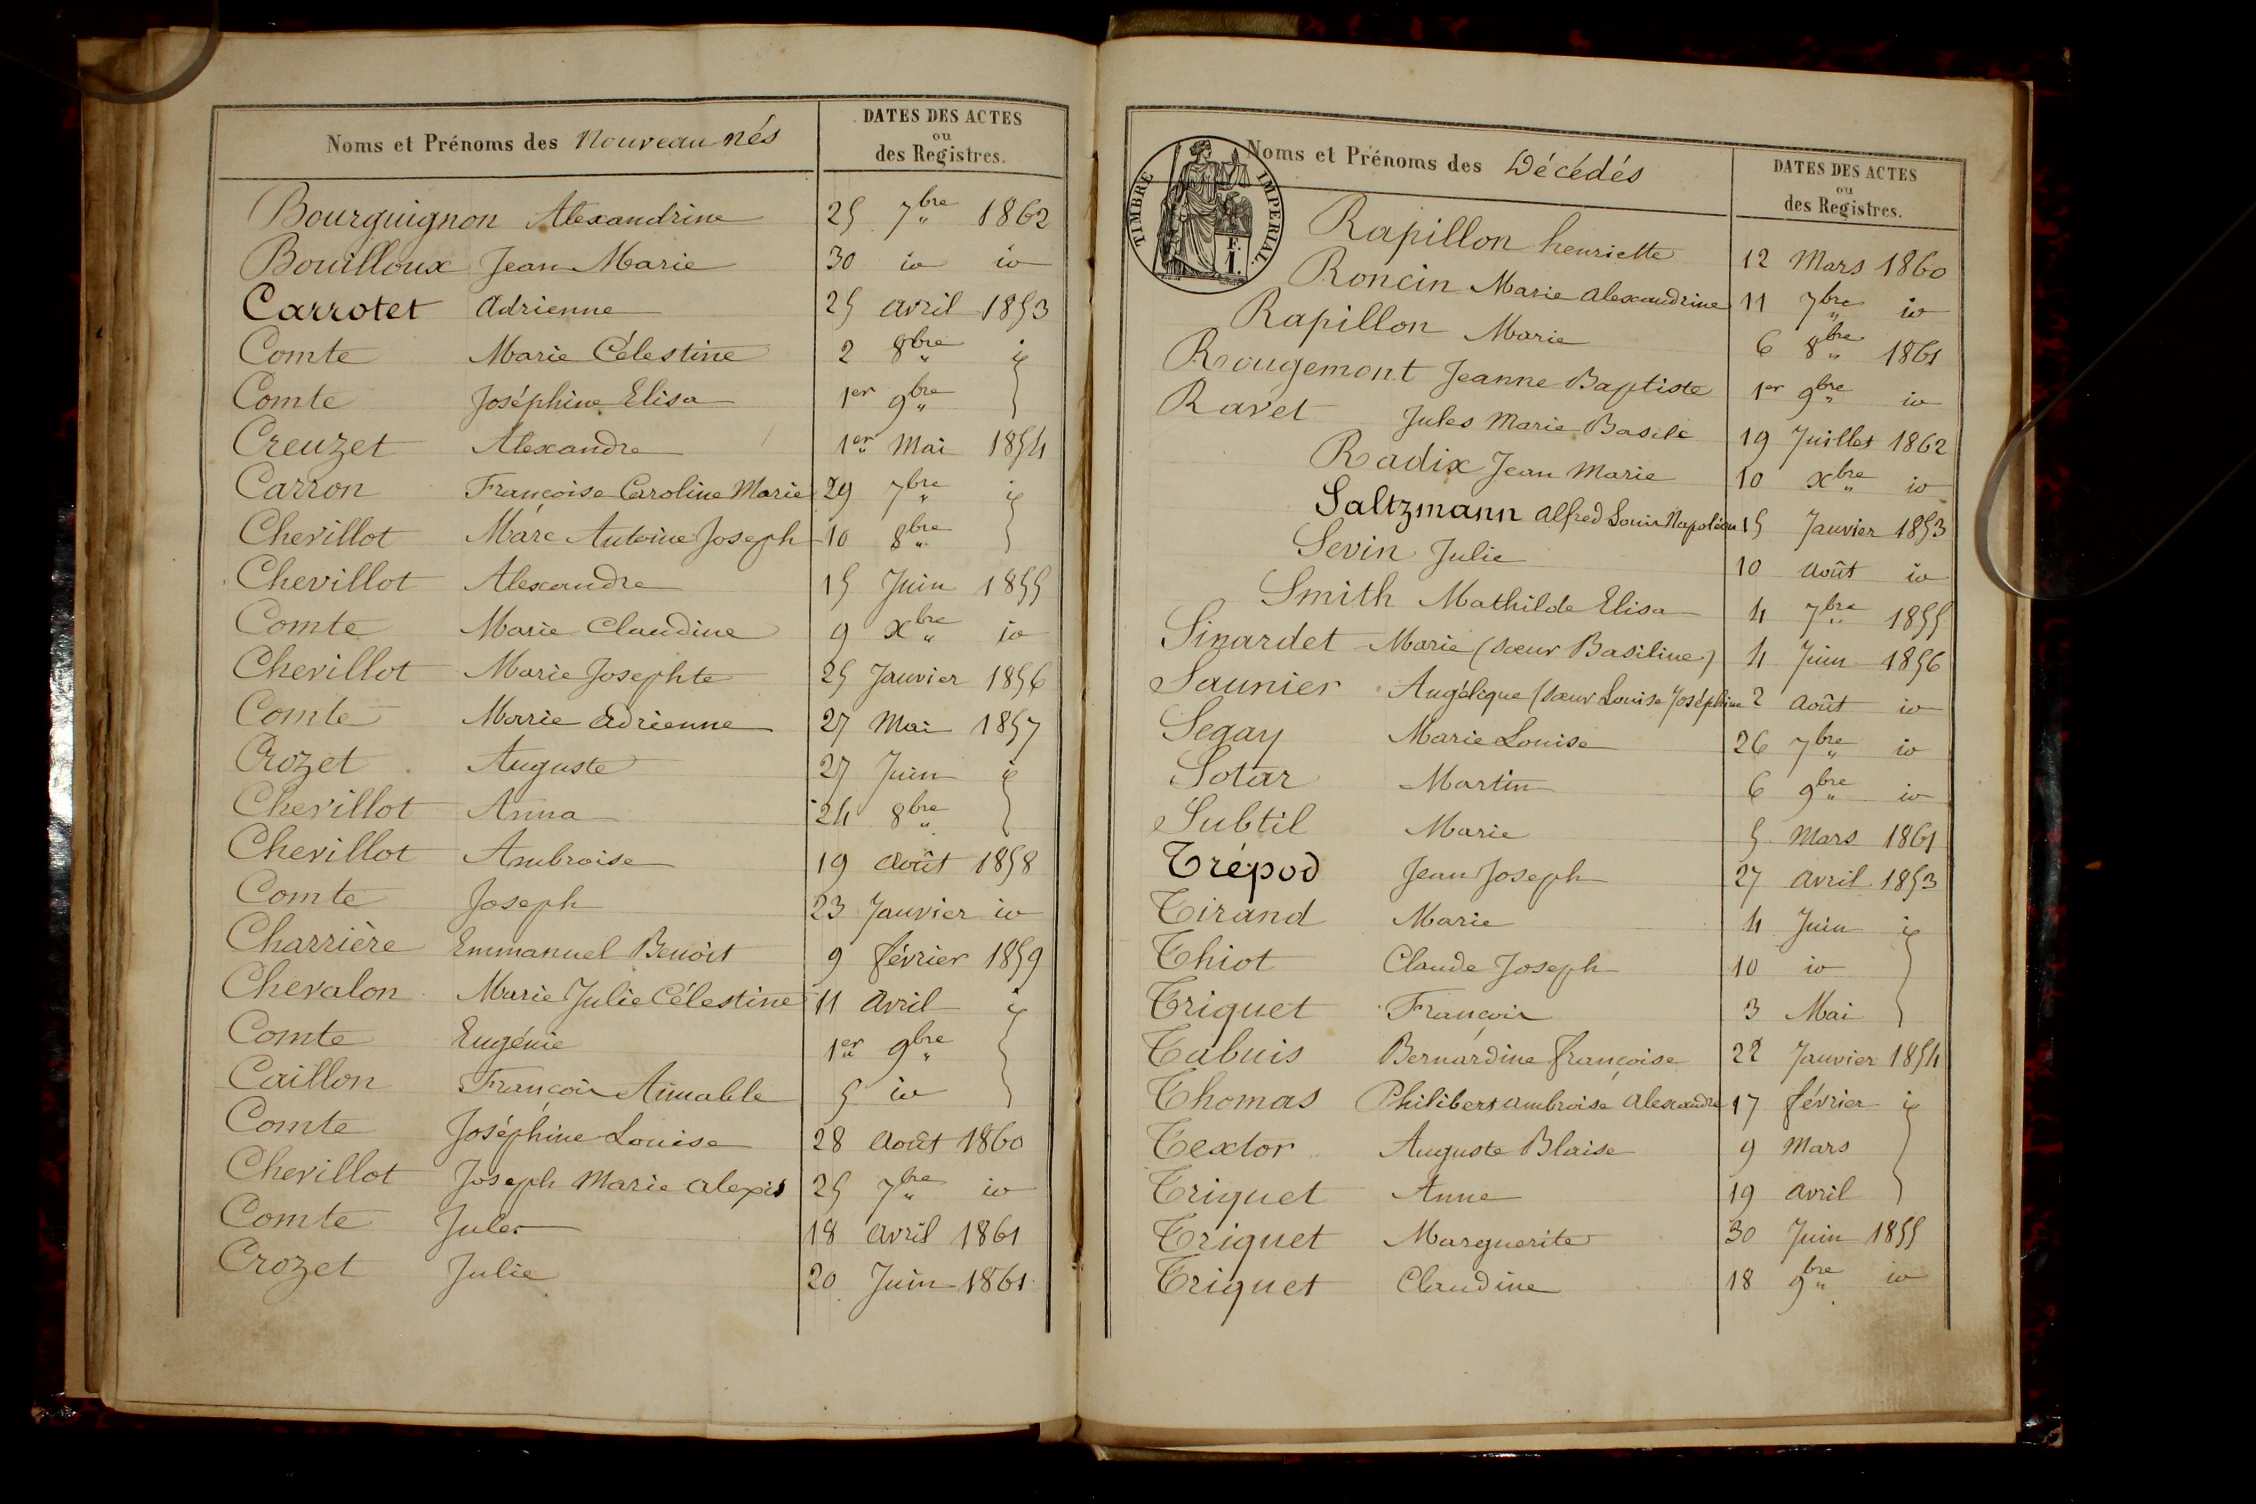 Noms et Prénoms des Nouveau nés
DATES DES ACTES
ou
des Registres.
Bourguignon Alexandrine 25 7bre 1862
Bouilloux Jean Marie 30 id id
Carrotet Adrienne 25 avril 1853
Comte Marie Célestine 2 8bre id
Comte Joséphine Elisa 1er 9bre
Creuzet Alexandre 1er Mai 1854
Carron Françoise Caroline Marie 29 7bre id
Chevillot Marc Antoine Joseph 10 8bre
Chevillot Alexandre 15 Juin 1855
Comte Marie Claudine 9 xbre id
Chevillot Marie Josephte 25 Janvier 1856
Comte Marie Adrienne 27 Mai 1857
Crozet Auguste 27 Juin id
Chevillot Anna 24 8bre
Chevillot Ambroise 19 Août 1858
Comte Joseph 23 Janvier id
Charrière Emmanuel Benoit 9 février 1859
Chevalon Marie Julie Célestine 11 avril id
Comte Eugénie 1er 9bre
Caillon François Aimable 5 id
Comte Joséphine Louise 28 Août 1860
Chevillot Joseph Marie Alexis 25 7bre id
Comte Jules 18 avril 1861
Crozet Julie 20 Juin 1861
TIMBRE IMPERIAL
F.
1.
Noms et Prénoms des Décédés
DATES DES ACTES
ou
des Registres.
Rapillon henriette 12 Mars 1860
Roncin Marie Alexandrine 11 7bre id
Rapillon Marie 6 8bre 1861
Rougemont Jeanne Baptiste 1er 9bre id
Ravet Jules Marie Basile 19 Juillet 1862
Radix Jean Marie 10 xbre id
Saltzmann Alfred Louis Napoléon 15 Janvier 1853
Sevin Julie 10 août id
Smith Mathilde Elisa 4 7bre 1855
Sinardet Marie (sœur Basiline) 4 Juin 1856
Saunier Angélique (sœur Louise Joséphine 2 Août id
Segay Marie Louise 26 7bre id
Sotar Martin 6 9bre id
Subtil Marie 5 Mars 1861
Trépod Jean Joseph 27 avril 1853
Tirand Marie 4 Juin id
Thiot Claude Joseph 10 id
Triquet François 3 Mai
Tabuis Bernardine françoise 22 Janvier 1854
Thomas Philibert ambroise Alexandre 17 février id
Textor Auguste Blaise 9 Mars
Triquet Anne 19 avril
Triquet Marguerite 30 Juin 1855
Triquet Claudine 18 9bre id